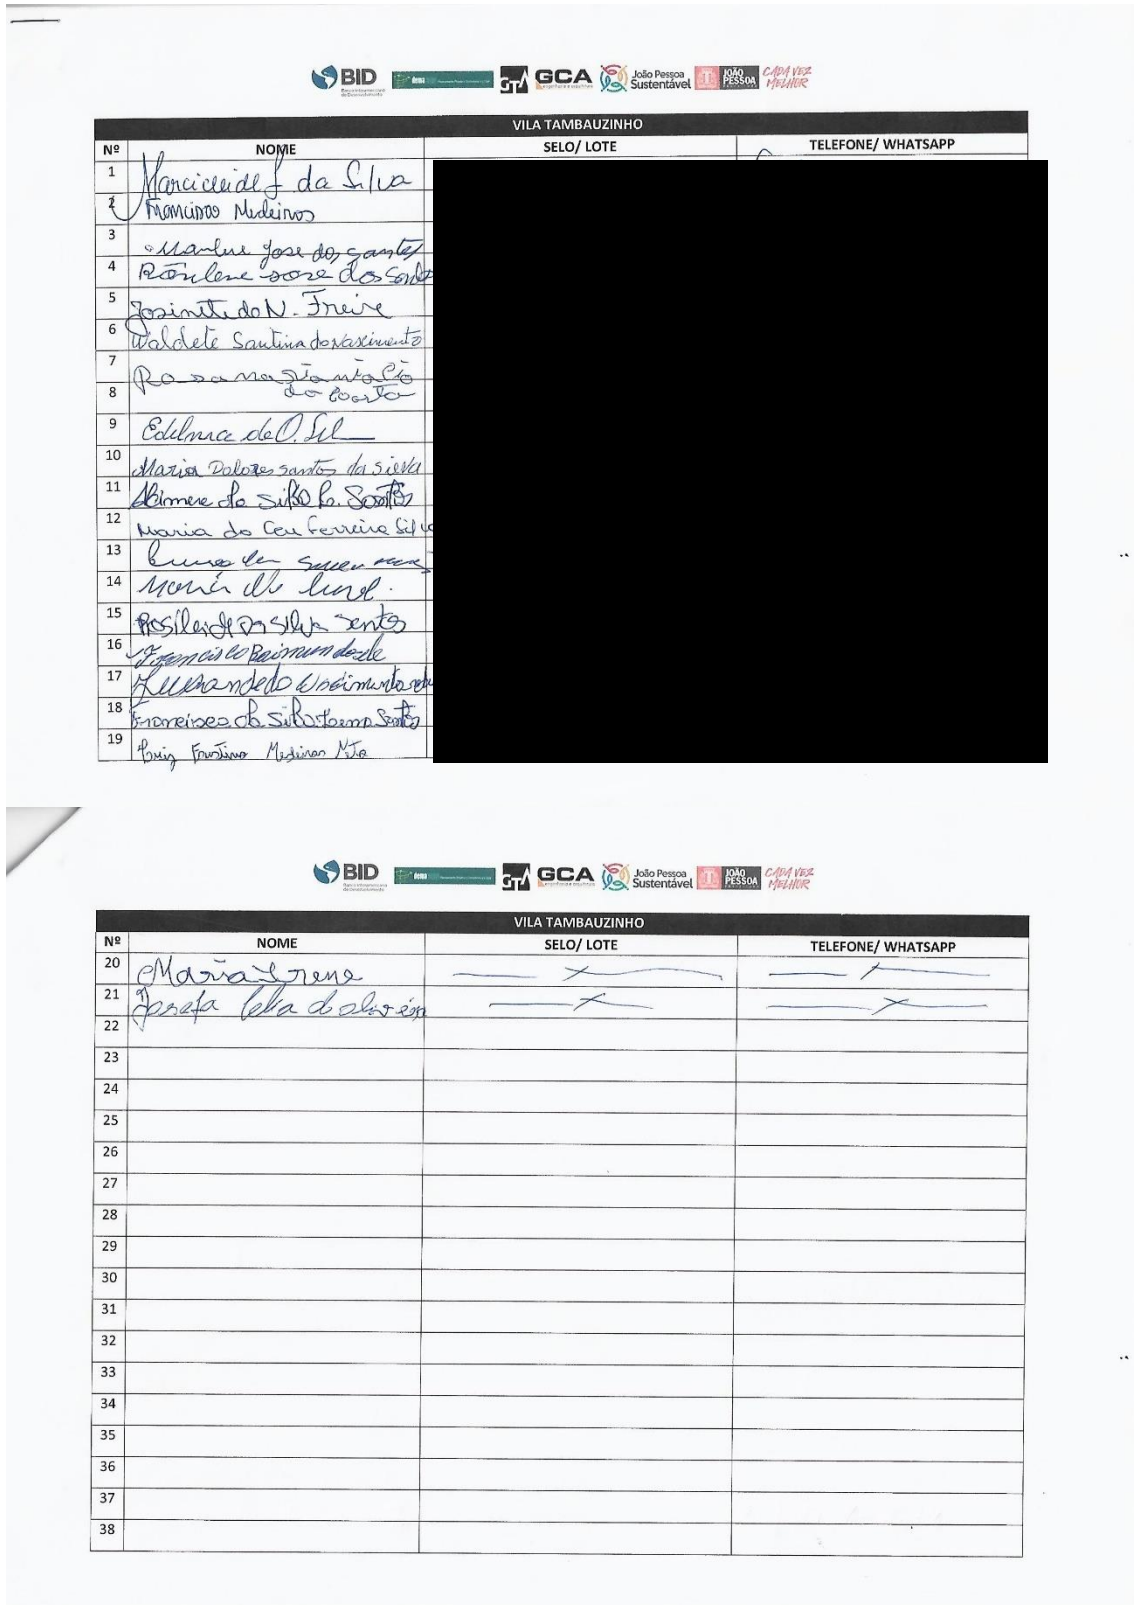 BID GCA João Pessoa Sustentável JOÃO PESSOA CADA VEZ MELHOR
VILA TAMBAUZINHO
Nº NOME SELO/ LOTE TELEFONE/ WHATSAPP
1 Marcicleide f da Silva
2 Francisco Medeiros
3 Marlene Jose dos Santos
4 Rosilene Jose dos Santo
5 do N. Freire
6 Waldete Santina do Nascimento
7 Rosana
8 da Costa
9 de O. Sil
10 Maria Dolores santos da silva
11 da Silva Santos
12 Maria do Ceu Ferreira Silva
13
14
15 Rosileide da Silva Santos
16 Francisco Raimundo de
17 do Nascimento
18 da Silva Santos
19 Luiz Faustino Medeiros Neto
BID GCA João Pessoa Sustentável JOÃO PESSOA CADA VEZ MELHOR
VILA TAMBAUZINHO
Nº NOME SELO/ LOTE TELEFONE/ WHATSAPP
20 Maria Irene
21 Josefa
22
23
24
25
26
27
28
29
30
31
32
33
34
35
36
37
38